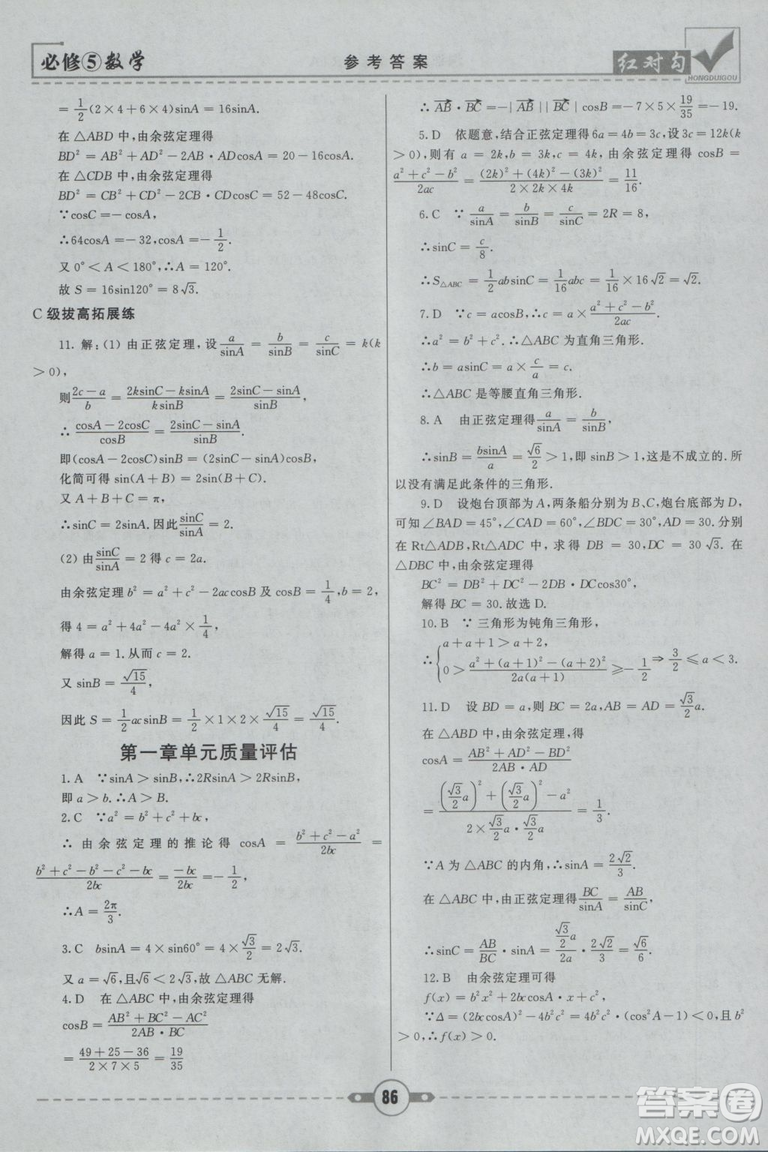 必修⑤数学
参考答案
红对勾
HONGDUIGOU
=1/2(2×4+6×4)sinA=16sinA.
在△ABD中,由余弦定理得
BD²=AB²+AD²-2AB·ADcosA=20-16cosA.
在△CDB中,由余弦定理得
BD²=CB²+CD²-2CB·CDcosC=52-48cosC.
∵cosC=-cosA,
∴64cosA=-32,cosA=-1/2.
又0°<A<180°,∴A=120°.
故S=16sin120°=8√3.
C级拔高拓展练
11.解:(1)由正弦定理,设a/sinA=b/sinB=c/sinC=k(k
>0),
则(2c-a)/b=(2ksinC-ksinA)/(ksinB)=(2sinC-sinA)/sinB.
∴(cosA-2cosC)/cosB=(2sinC-sinA)/sinB.
即(cosA-2cosC)sinB=(2sinC-sinA)cosB.
化简可得sin(A+B)=2sin(B+C).
又A+B+C=π,
∴sinC=2sinA.因此sinC/sinA=2.
(2)由sinC/sinA=2得c=2a.
由余弦定理b²=a²+c²-2accosB及cosB=1/4,b=2,
得4=a²+4a²-4a²×1/4,
解得a=1.从而c=2.
又sinB=√15/4,
因此S=1/2acsinB=1/2×1×2×√15/4=√15/4.
第一章单元质量评估
1.A ∵sinA>sinB,∴2RsinA>2RsinB,
即a>b.∴A>B.
2.C ∵a²=b²+c²+bc,
∴由余弦定理的推论得cosA=(b²+c²-a²)/2bc=
(b²+c²-b²-c²-bc)/2bc=-bc/2bc=-1/2,
∴A=2π/3.
3.C bsinA=4×sin60°=4×√3/2=2√3.
又a=√6,且√6<2√3,故△ABC无解.
4.D 在△ABC中,由余弦定理得
cosB=(AB²+BC²-AC²)/(2AB·BC)
=(49+25-36)/(2×7×5)=19/35
∴AB·BC=-|AB||BC|cosB=-7×5×19/35=-19.
5.D 依题意,结合正弦定理6a=4b=3c,设3c=12k(k
>0),则有a=2k,b=3k,c=4k,由余弦定理得cosB=
(a²+c²-b²)/2ac=((2k)²+(4k)²-(3k)²)/(2×2k×4k)=11/16.
6.C ∵a/sinA=b/sinB=c/sinC=2R=8,
∴sinC=c/8.
∴S△ABC=1/2absinC=1/16abc=1/16×16√2=√2.
7.D ∵c=acosB,∴c=a×(a²+c²-b²)/2ac.
∴a²=b²+c².∴△ABC为直角三角形.
∴b=asinC=a×c/a=c.
∴△ABC是等腰直角三角形.
8.A 由正弦定理得a/sinA=b/sinB,
∴sinB=bsinA/a=√6/2>1,即sinB>1,这是不成立的.所
以没有满足此条件的三角形.
9.D 设炮台顶部为A,两条船分别为B、C,炮台底部为D,
可知∠BAD=45°,∠CAD=60°,∠BDC=30°,AD=30.分别
在Rt△ADB,Rt△ADC中,求得DB=30,DC=30√3.在
△DBC中,由余弦定理得
BC²=DB²+DC²-2DB·DCcos30°,
解得BC=30.故选D.
10.B ∵三角形为钝角三角形,
∴{a+a+1>a+2, 0>(a²+(a+1)²-(a+2)²)/(2a(a+1))≥-1/2⇒3/2≤a<3.
11.D 设BD=a,则BC=2a,AB=AD=√3/2a.
在△ABD中,由余弦定理得
cosA=(AB²+AD²-BD²)/(2AB·AD)
=((√3/2a)²+(√3/2a)²-a²)/(2×√3/2a·√3/2a)=1/3.
又∵A为△ABC的内角,∴sinA=2√2/3.
在△ABC中,由正弦定理得BC/sinA=AB/sinC,
∴sinC=AB/BC·sinA=(√3/2a)/2a·2√2/3=√6/6.
12.B 由余弦定理可得
f(x)=b²x²+2bccosA·x+c²,
∵Δ=(2bccosA)²-4b²c²=4b²c²·(cos²A-1)<0,且
b²>0,∴f(x)>0.
86
答案圈
MXQE.COM